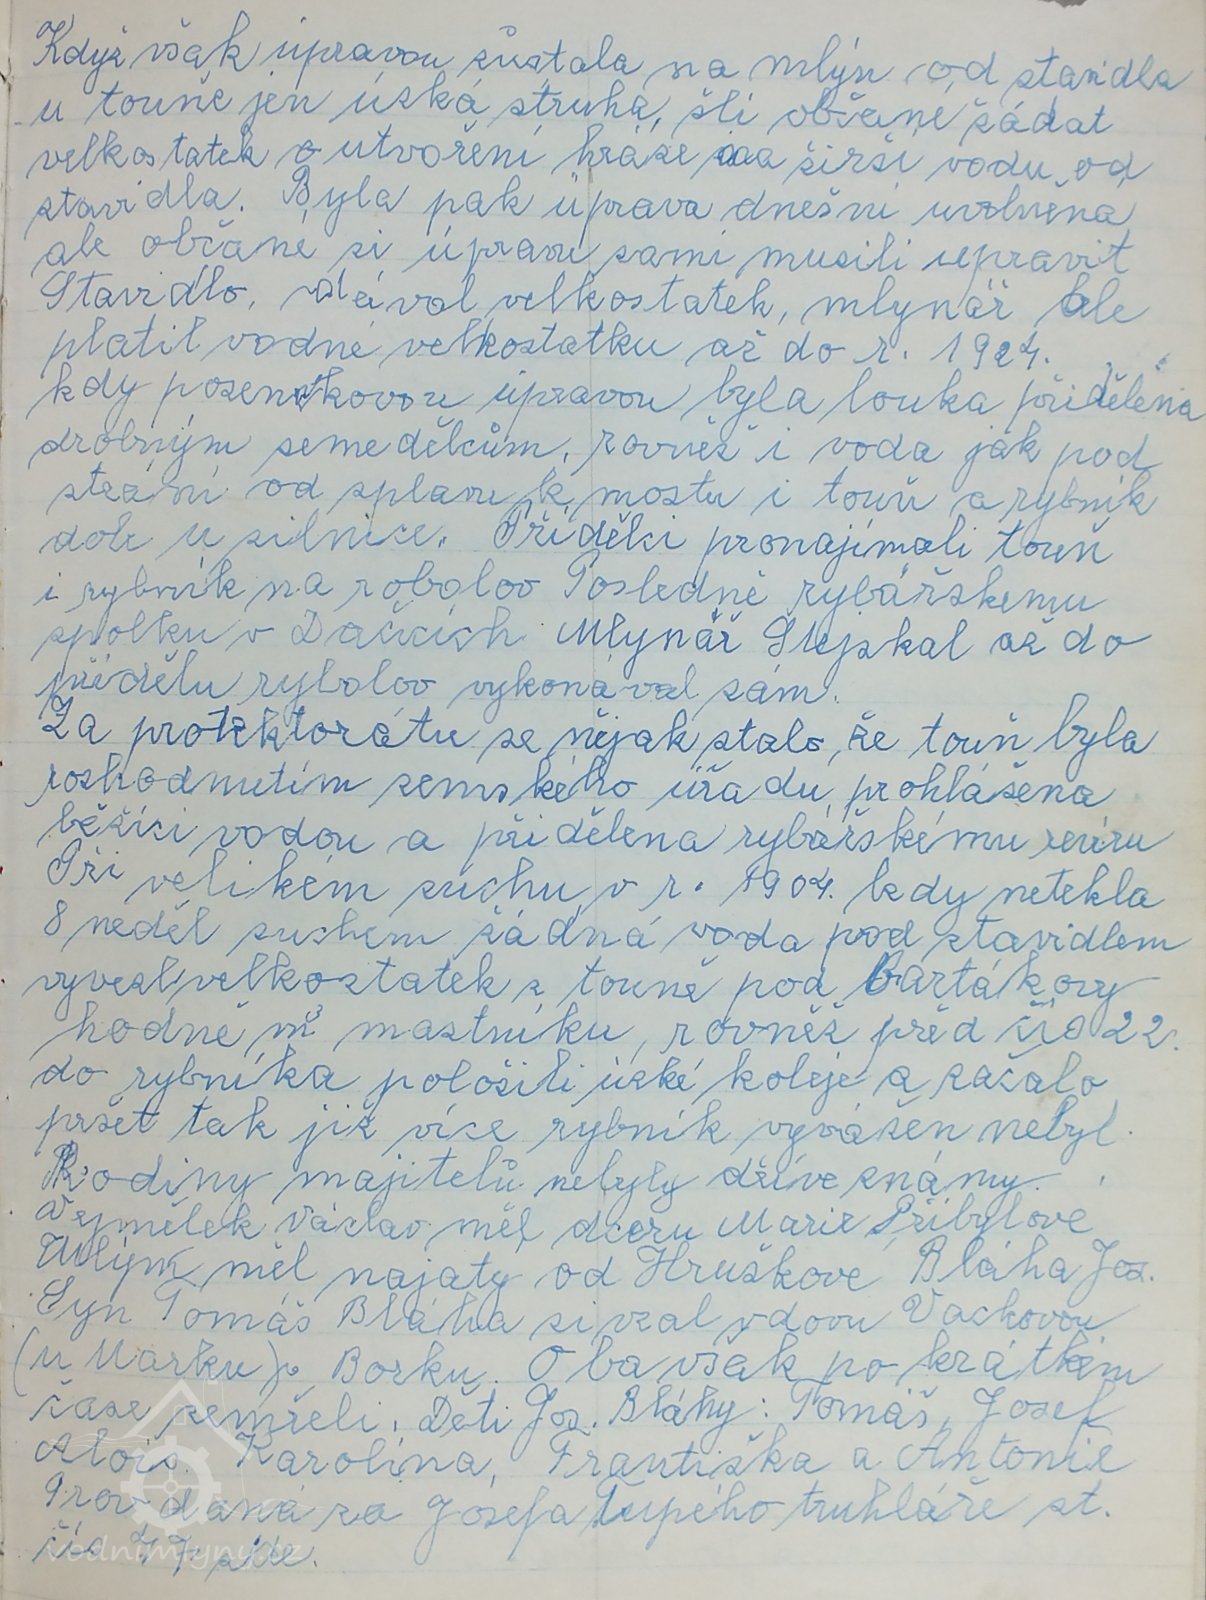 Když však úpravou zůstala na mlýn od stavidla
u touně jen úzká struha, šli občané žádat
velkostatek o utvoření hráze na širší vodu od
stavidla. Byla pak úprava dnešní uvolněna
ale občané si úpravu sami musili upravit
Stavidlo, dával velkostatek, mlynář ale
platil vodné velkostatku až do r. 1924.
kdy pozemkovou úpravou byla louka přidělena
drobným zemedělcům, rovněž i voda jak pod
strání od splavu k mostu i touň a rybník
dole u silnice. Přídělci pronajímali touň
i rybník na robolov Posledně rybářskemu
spolku v Dačicích Mlynář Stejskal až do
přídělu rybolov vykonával sám.
Za protektorátu se nějak stalo, že touň byla
rozhodnutím zemského úřadu prohlášena
běžící vodou a přidělena rybářskému revíru
Při velikém suchu v r. 1904. kdy netekla
8 neděl suchem žádná voda pod stavidlem
vyvezl velkostatek z touně pod Bartákovy
hodně m³ mastníku, rovněž před čís 22.
do rybníka položili úzké koleje a začalo
pršet tak již více rybník vyvážen nebyl.
Rodiny majitelů nebyly dříve známy.
Vejmělek Václav měl dceru Marie Přibylove
Mlýn měl najatý od Hruškove Bláha Jos.
Syn Tomáš Bláha si vzal vdovu Vackovou
(u Marku) v Borku. Oba však po krátkém
čase zemřeli. Děti Jos. Bláhy: Tomáš, Josef
Alois. Karolina, Františka a Antonie
Provdaná za Josefa Tupého truhláře st.
čís 77 zde.
vodnimlyny.cz